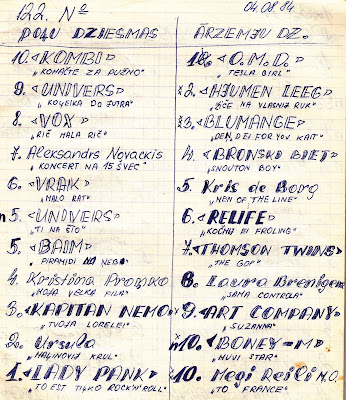 122. Nº
04.08.84
POĻU DZIESMAS
10. <KOMBI>
„KOHAČTE ZA PUŽNO"
9. <UNIVERS>
„KOĻEIKA DO JUTRA"
8. <VOX>
„RIČ MALA RIČ"
7. Aleksandrs Novackis
„KONCERT NA 15 ŠVEC"
6. <VRAK>
„MALO RAT"
5. <UNIVERS>
„TI NA STO"
5. <BAIM>
„PIRAMIDI NA NEBO"
4. Kristina Pronsko
„MOJA VELKA FILA"
3. <KAPITAN NEMO>
„TVOJA LORELEI"
2. Ursula
„MALINOVIJ KRUL"
1. <LADY PANK>
„TO EST TIĻKO ROCK'N'ROLL"
ĀRZEMJU DZ.
1. <O.M.D.>
„TESLA GIRL"
2. <HJUMEN LEEG>
„ŽIČE NA VLASNIJ RUK"
3. <BLUMANGE>
„DEN, DEI FOR YOU KAIT"
4. <BRONSKI BIET>
„SNOUTON BOY"
5. Kris de Borg
„MEN OF THE LINE"
6. <RELIFE>
„KOČHAJ EI FROLING"
7. <THOMSON TWINS>
„THE GOP"
8. Laura Brenigen
„SAMA CONTROLA"
9. <ART COMPANY>
„SUZANNA"
10. <BONEY=M>
„HUVI STAR"
10. Megi Reili M.O.
„TO FRANCE"